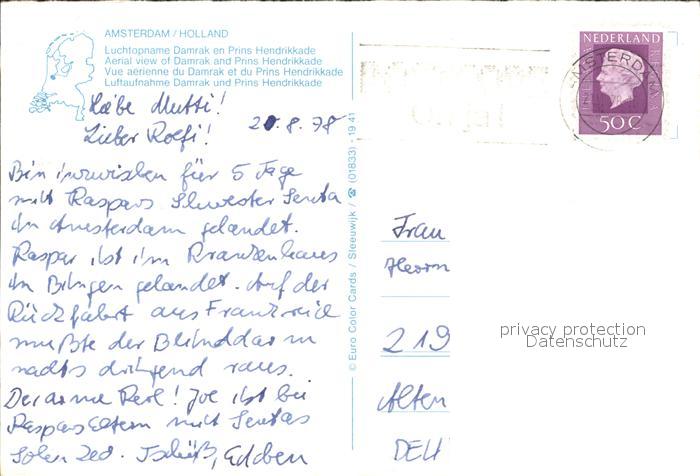 AMSTERDAM / HOLLAND
Luchtopname Damrak en Prins Hendrikkade
Aerial view of Damrak and Prins Hendrikkade
Vue aérienne du Damrak et du Prins Hendrikkade
Luftaufnahme Damrak und Prins Hendrikkade
NEDERLAND
AMSTERDAM
50 C
Liebe Mutti!
Lieber Rolfi! 20.8.78
Bin inzwischen für 5 Tage
mit Kaspars Schwester Senta
in Amsterdam gelandet.
Kaspar ist im Krankenhaus
in Bingen gelandet. Auf der
Rückfahrt aus Frankreich
mußte der Blinddarm
nachts dringend raus.
Der arme Kerl! Joe ist bei
Kaspars Eltern mit Sentas
Sohn Zed. Tschüß,
© Euro Color Cards / Sleeuwijk / ☎ (01833) - 19 41
Frau
Herrn
219
Alten
privacy protection
Datenschutz